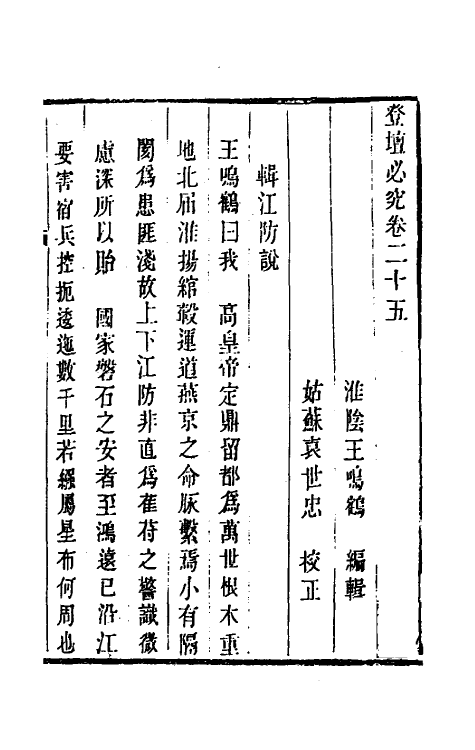 登壇必究卷二十五
淮陰王鳴鶴　編輯
姑蘇袁世忠　校正
輯江防說
王鳴鶴曰我　高皇帝定鼎留都爲萬世根本重
地北屆淮揚綰轂運道燕京之命脉繫焉小有隔
閡爲患匪淺故上下江防非直爲萑苻之警識微
慮深所以貽　國家磐石之安者至鴻遠已沿江
要害宿兵控扼逶迤數千里若繩屬星布何周也